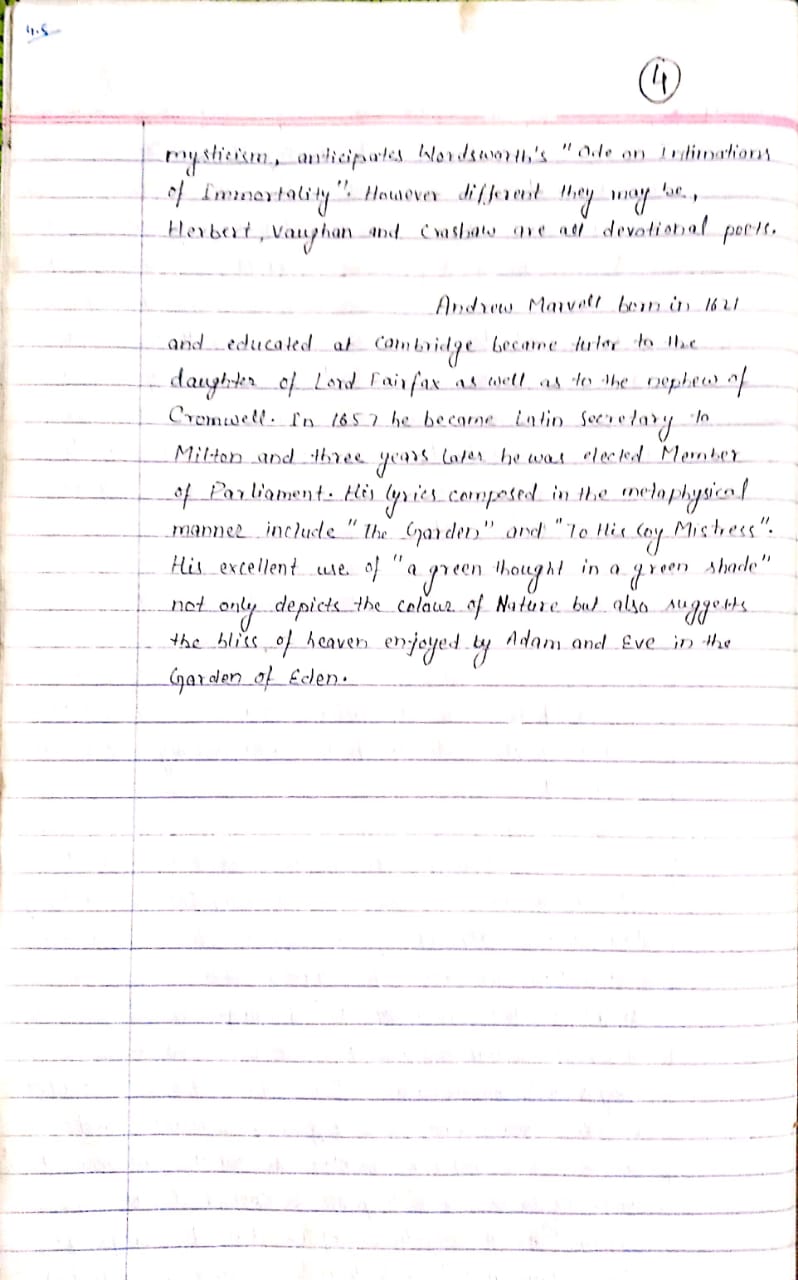 4.5
4
mysticism, anticipates Wordsworth's "Ode on Intimations
of Immortality". However different they may be,
Herbert, Vaughan and Crashaw are all devotional poets.
Andrew Marvell born in 1621
and educated at Cambridge became tutor to the
daughter of Lord Fairfax as well as to the nephew of
Cromwell. In 1657 he became Latin Secretary to
Milton and three years later he was elected Member
of Parliament. His lyrics composed in the metaphysical
manner include "The Garden" and "To His Coy Mistress".
His excellent use of "a green thought in a green shade"
not only depicts the colour of Nature but also suggests
the bliss of heaven enjoyed by Adam and Eve in the
Garden of Eden.